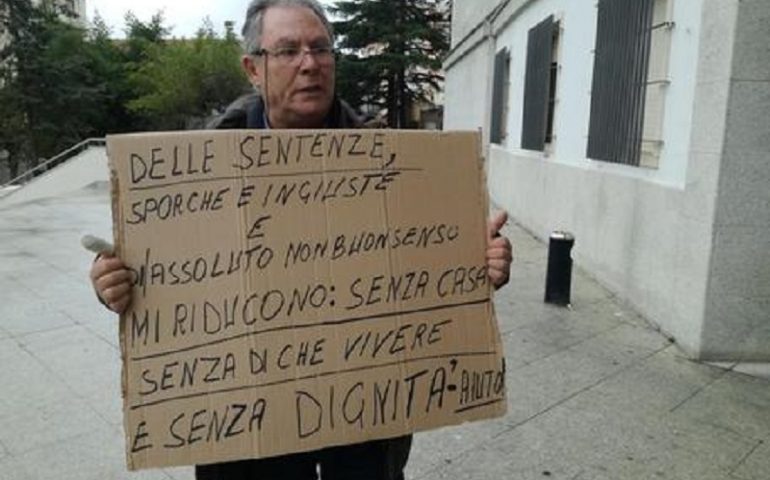 DELLE SENTENZE,
SPORCHE E INGIUSTE
E
D'ASSOLUTO NON BUON SENSO
MI RIDUCONO: SENZA CASA
SENZA DI CHE VIVERE
E SENZA DIGNITÀ: AIUTO!